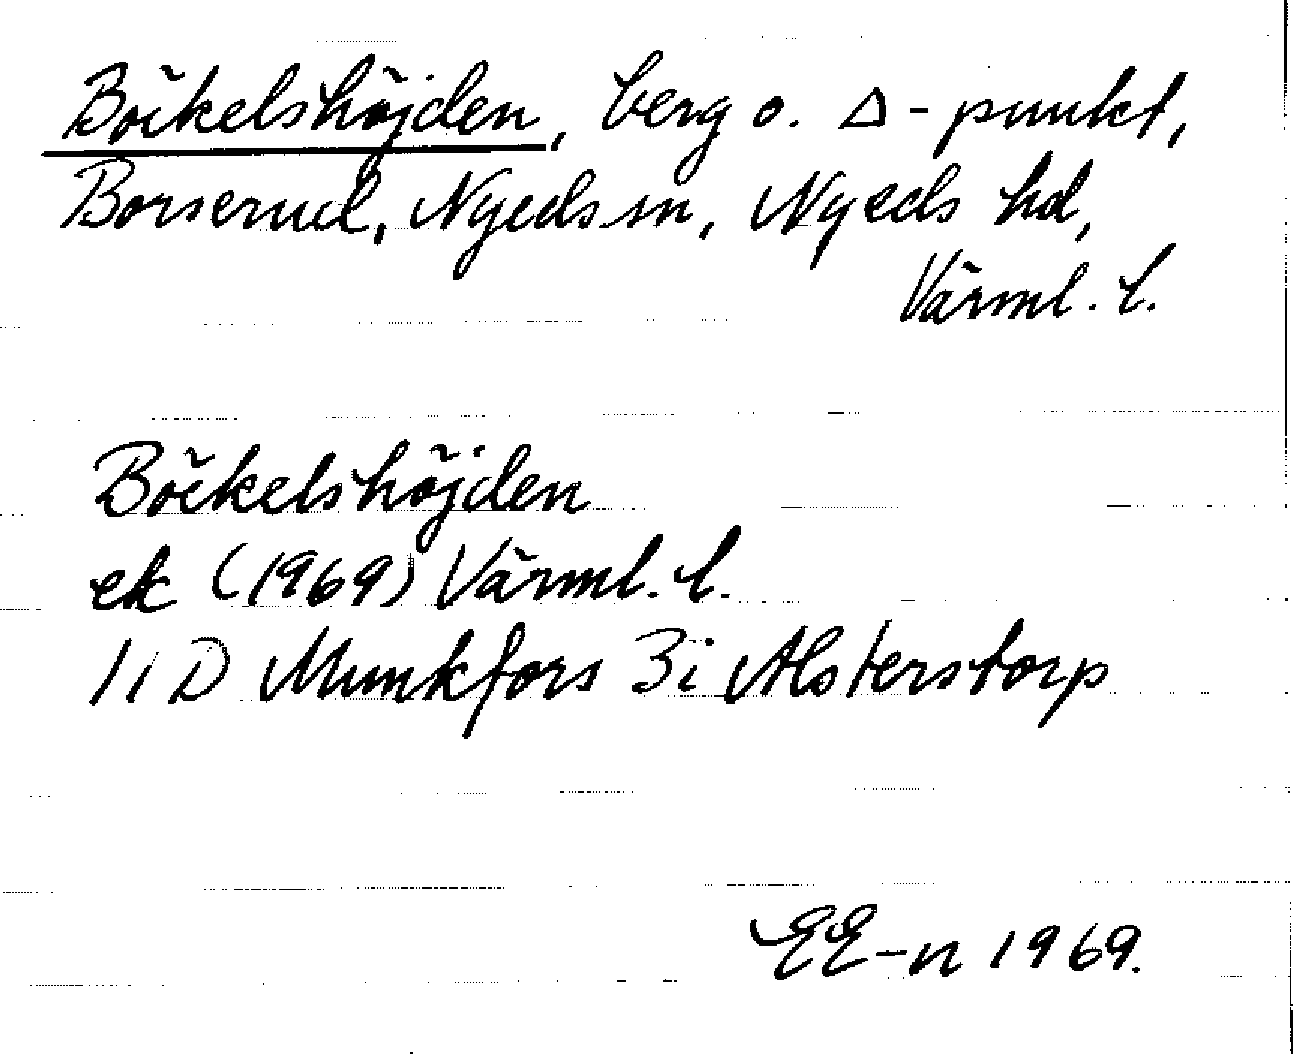 Böckelshöjden, berg o. Δ-punkt,
Borserud, Nyeds sn, Nyeds hd,
Värml. l.
Böckelshöjden
ek (1969) Värml. l.
11 D Munkfors 3i Alsterstorp
EE-n 1969.